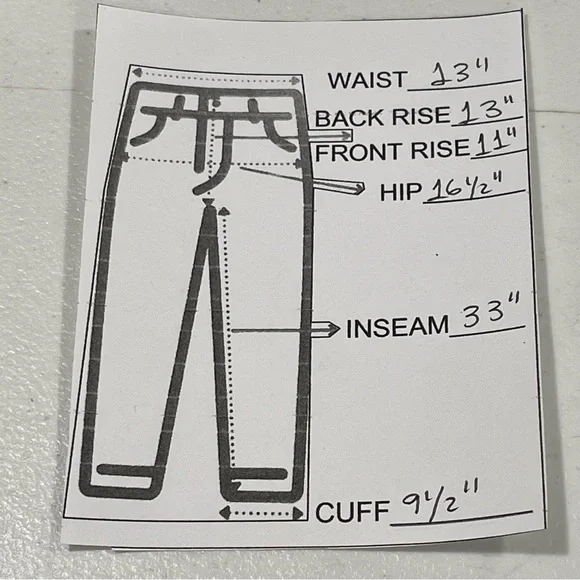 WAIST 13"
BACK RISE 13"
FRONT RISE 11"
HIP 16 1/2"
INSEAM 33"
CUFF 9 1/2"